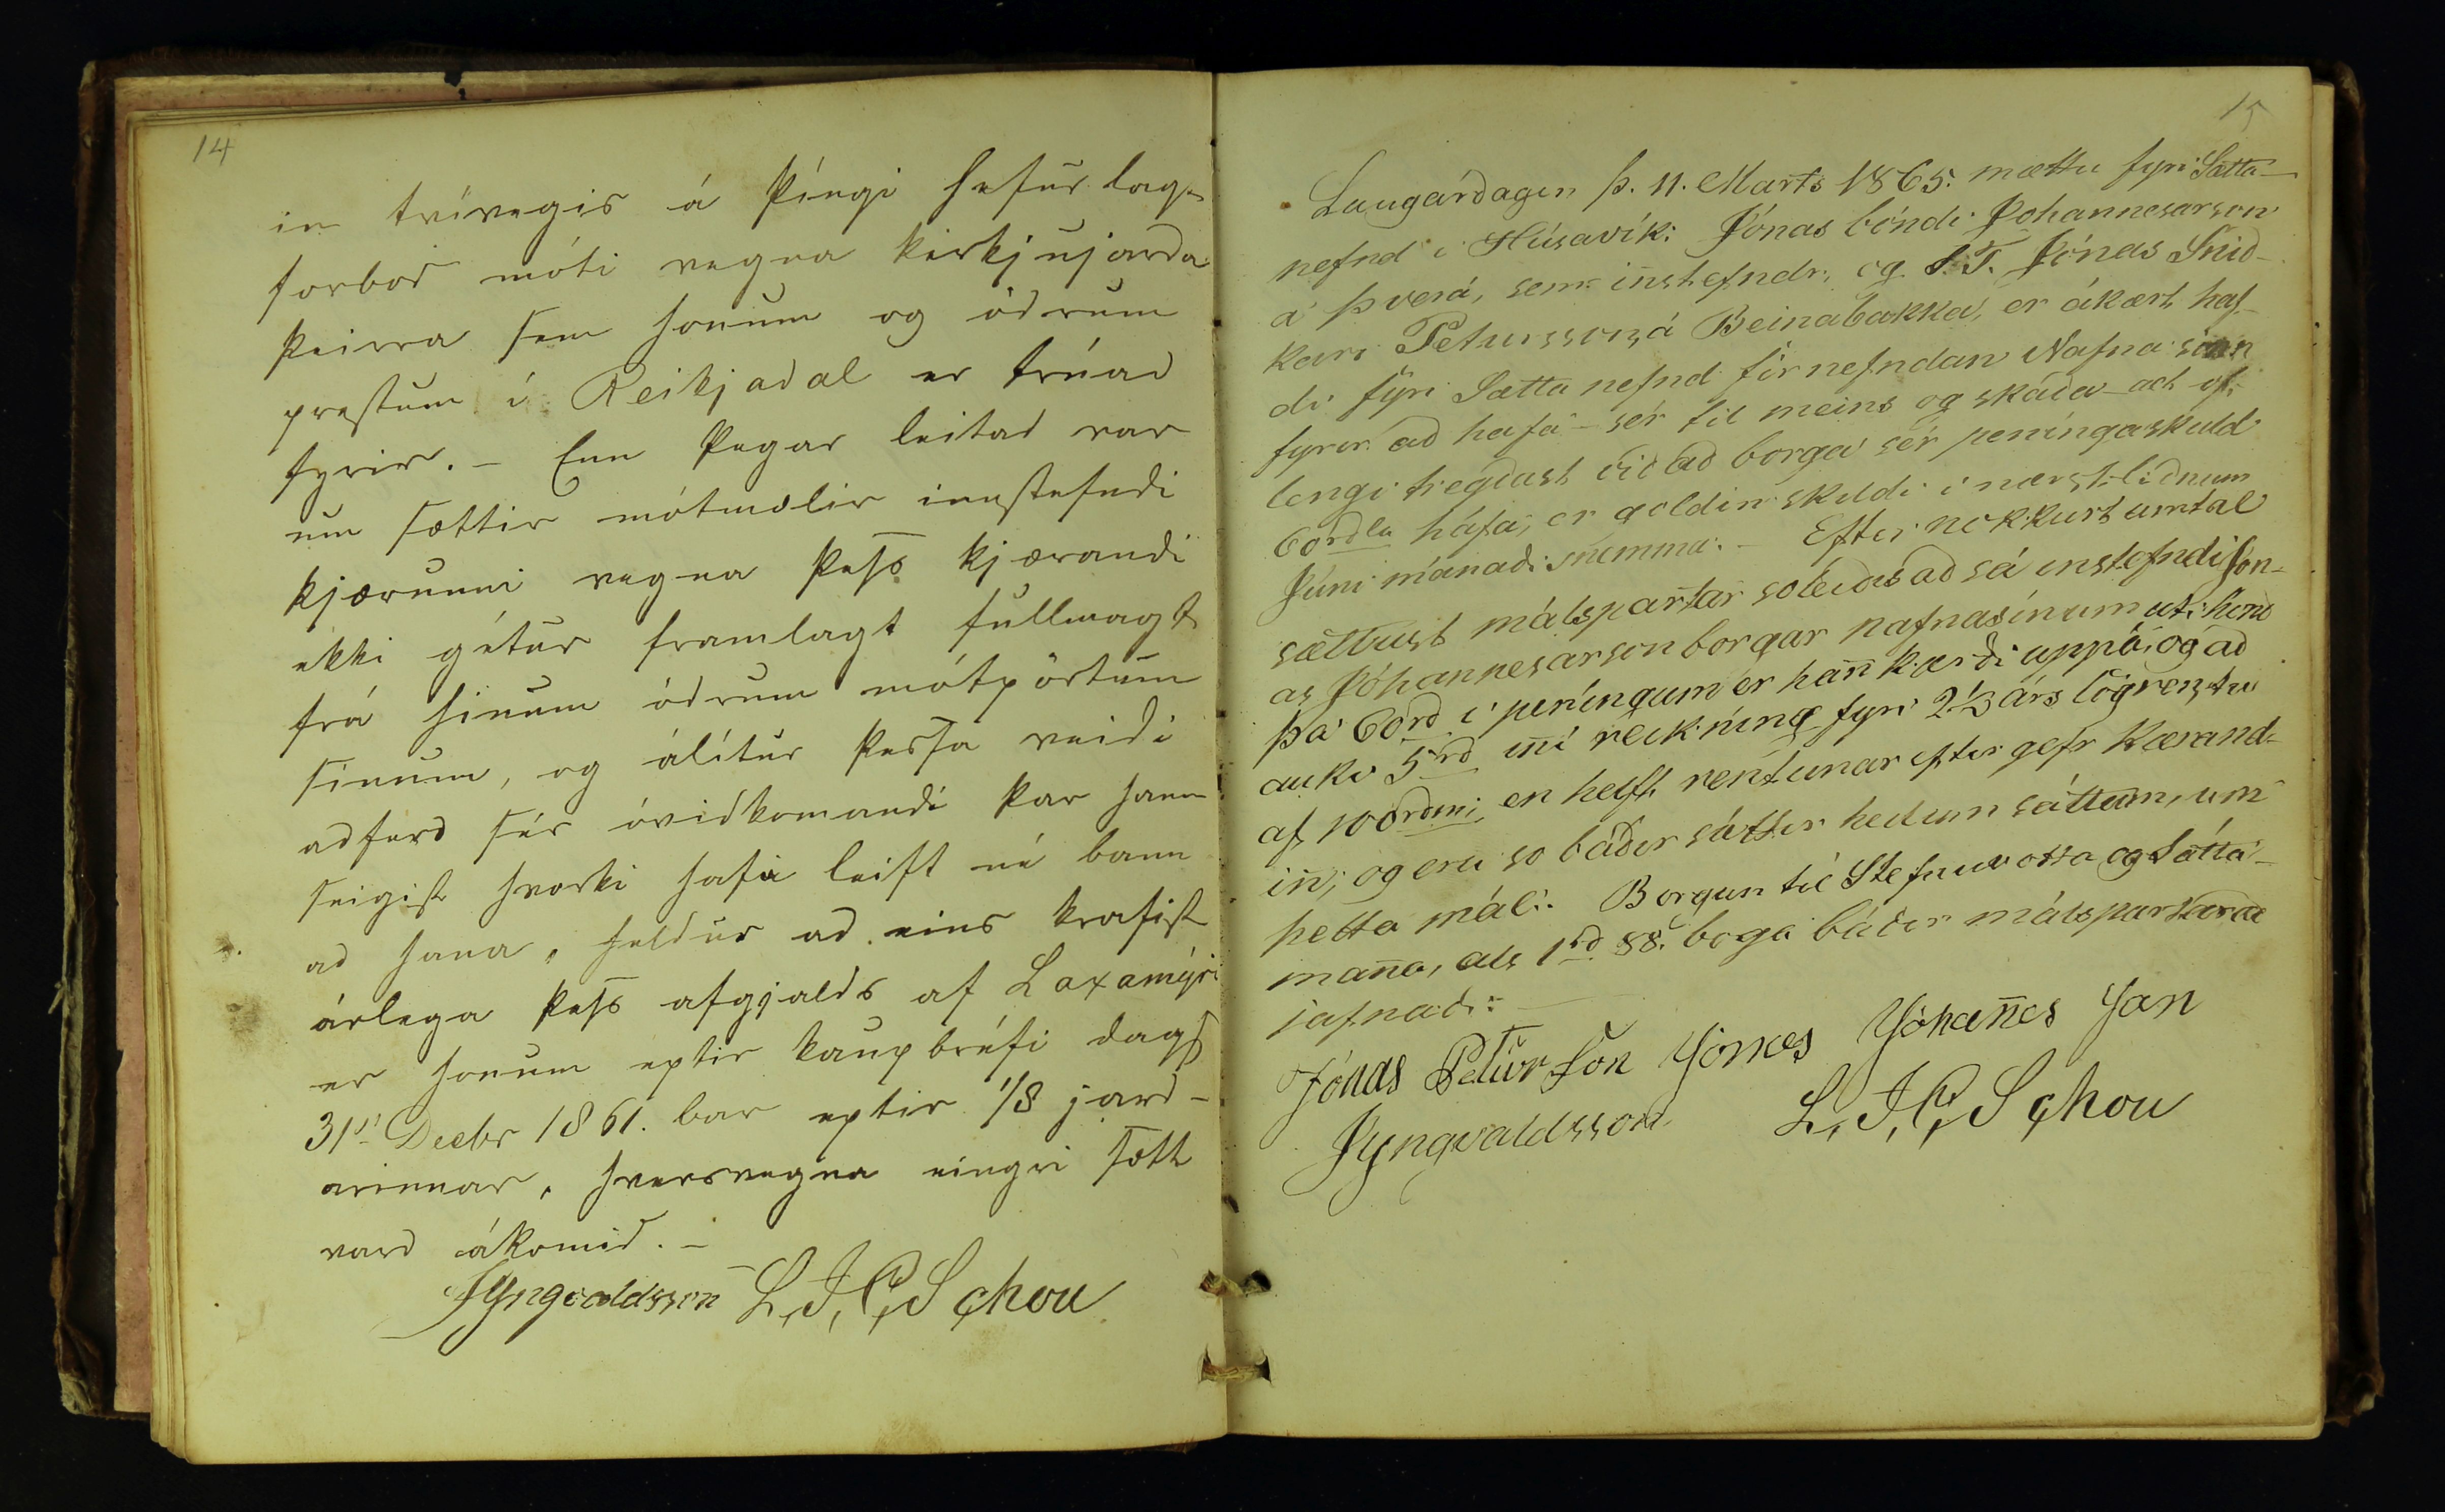 14
in trívegis á Þíngi hefur lagt
forbod móti vegna kirkjujarda
þeirra sem honum og ödrum
prestum í Reikjadal er trúad
fyrir. – Enn þegar leitad var
um sættir mótmælir innstefndi
kjærunni vegna þess kjærandi
ekki getur framlagt fullmagt
frá hinum ödrum mótpörtum
sinum, og álítur þessa veidi
adferd sér óvidkomandi þar hann
seigist hvorki hafa leift né bann
ad hana, heldur ad eins krafist
árlega þess afgjalds af Laxamýri
er honum eptir kaupbréfi dags
31ta Decbr 1861. bar eptir 1/8 jard-
arinnar, hversvegna eingri sætt
vard ákomid. –
JYngvaldsson L, J, C, Schou
15
Laugardagin þ. 11. Marts 1865. mættu fyri Sætta-
nefnd í Húsavík: Jónas bóndi Johannesarson
á Þverá, sem innstefndr, og S.T. Jónas Snid-
kari Petursson á Beinabakka, er ákært haf-
di fyri Sætta nefnd fir nefndan Nafna sinn
fyrir ad hafa – sér til meins og skada – at of
lengi tregdast vid ad borga sér peningaskuld
60rdla hafa, er goldin skildi í nærstlidnum
Juni mánadi snemma. – Efter nokkurt umtal
sættust málspartar soleidis ad sá instefndi Jon-
as Jóhannesarson borgar nafnasínum ut í hönd
þá 60rd í peníngum er hann kærdi uppá, og ad
auki 5rd inní reikníng fyri 2½ árs lögrentu
af 100rdmi, en helft rentunar efter gefr Kærand-
in; og eru so bádir sáttir heilum sáttum, um
þetta mál. Borgun til Stefnuvotta og Sátta-
manna, als 1rd 88. boga bádir málspartar ad
jafnadi. –
Jónas PeturSon Jónas Jóhannes Son
JYngvaldsson L, J, C, Schou